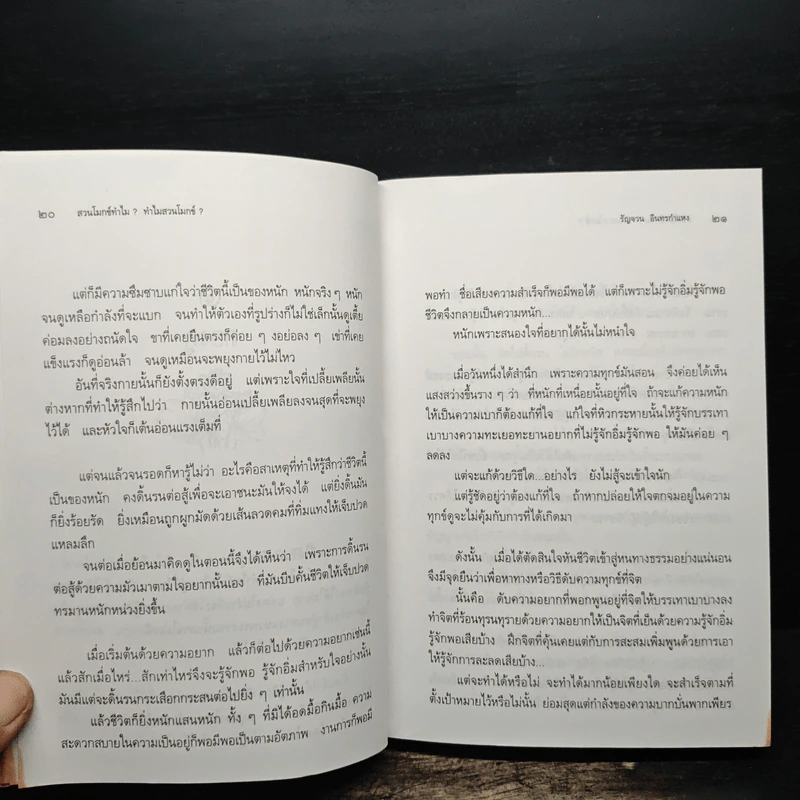 ๒๐ สวนโมกข์ทำไม ? ทำไมสวนโมกข์ ?
แต่ก็มีความซึมซาบแก่ใจว่าชีวิตนี้เป็นของหนัก หนักจริง ๆ หนัก
จนดูเหลือกำลังที่จะแบก จนทำให้ตัวเองที่รูปร่างก็ไม่ใช่เล็กนั้นดูเตี้ย
ค่อมลงอย่างถนัดใจ ขาที่เคยยืนตรงก็ค่อย ๆ งอย่อลง ๆ เข่าที่เคย
แข็งแรงก็ดูอ่อนล้า จนดูเหมือนจะพยุงกายไว้ไม่ไหว
อันที่จริงกายนั้นก็ยังตั้งตรงดีอยู่ แต่เพราะใจที่เปลี้ยเพลียนั้น
ต่างหากที่ทำให้รู้สึกไปว่า กายนั้นอ่อนเปลี้ยเพลียลงจนสุดที่จะพยุง
ไว้ได้ และหัวใจก็เต้นอ่อนแรงเต็มที่
แต่จนแล้วจนรอดก็หารู้ไม่ว่า อะไรคือสาเหตุที่ทำให้รู้สึกว่าชีวิตนี้
เป็นของหนัก คงดิ้นรนต่อสู้เพื่อจะเอาชนะมันให้จงได้ แต่ยิ่งดิ้นมัน
ก็ยิ่งร้อยรัด ยิ่งเหมือนถูกผูกมัดด้วยเส้นลวดคมที่ทิ่มแทงให้เจ็บปวด
แหลมลึก
จนต่อเมื่อย้อนมาคิดดูในตอนนี้จึงได้เห็นว่า เพราะการดิ้นรน
ต่อสู้ด้วยความมัวเมาตามใจอยากนั้นเอง ที่มันบีบคั้นชีวิตให้เจ็บปวด
ทรมานหนักหน่วงยิ่งขึ้น
เมื่อเริ่มต้นด้วยความอยาก แล้วก็ต่อไปด้วยความอยากเช่นนี้
แล้วสักเมื่อไหร่...สักเท่าไหร่จึงจะรู้จักพอ รู้จักอิ่มสำหรับใจอย่างนั้น
มันมีแต่จะดิ้นรนกระเสือกกระสนต่อไปยิ่ง ๆ เท่านั้น
แล้วชีวิตก็ยิ่งหนักแสนหนัก ทั้ง ๆ ที่มิได้อดมื้อกินมื้อ ความ
สะดวกสบายในความเป็นอยู่ก็พอมีพอเป็นตามอัตภาพ งานการก็พอมี
รัญจวน อินทรกำแหง ๒๑
พอทำ ชื่อเสียงความสำเร็จก็พอมีพอได้ แต่ก็เพราะไม่รู้จักอิ่มรู้จักพอ
ชีวิตจึงกลายเป็นความหนัก...
หนักเพราะสนองใจที่อยากได้นั้นไม่หนำใจ
เมื่อวันหนึ่งได้สำนึก เพราะความทุกข์มันสอน จึงค่อยได้เห็น
แสงสว่างขึ้นราง ๆ ว่า ที่หนักที่เหนื่อยนั้นอยู่ที่ใจ ถ้าจะแก้ความหนัก
ให้เป็นความเบาก็ต้องแก้ที่ใจ แก้ใจที่หิวกระหายนั้นให้รู้จักบรรเทา
เบาบางความทะเยอทะยานอยากที่ไม่รู้จักอิ่มรู้จักพอ ให้มันค่อย ๆ
ลดลง
แต่จะแก้ด้วยวิธีใด...อย่างไร ยังไม่สู้จะเข้าใจนัก
แต่รู้ชัดอยู่ว่าต้องแก้ที่จิต ถ้าหากปล่อยให้ใจตกจมอยู่ในความ
ทุกข์ดูจะไม่คุ้มกับการที่ได้เกิดมา
ดังนั้น เมื่อได้ตัดสินใจหันชีวิตเข้าสู่หนทางธรรมอย่างแน่นอน
จึงมีจุดยืนว่าเพื่อหาทางหรือวิธีดับความทุกข์ที่จิต
นั้นคือ ดับความอยากที่พอกพูนอยู่ที่จิตให้บรรเทาเบาบางลง
ทำจิตที่ร้อนทุรนทุรายด้วยความอยากให้เป็นจิตที่เย็นด้วยความรู้จักอิ่ม
รู้จักพอเสียบ้าง ฝึกจิตที่คุ้นเคยแต่กับการสะสมเพิ่มพูนด้วยการเอา
ให้รู้จักการละลดเสียบ้าง...
แต่จะทำได้หรือไม่ จะทำได้มากน้อยเพียงใด จะสำเร็จตามที่
ตั้งเป้าหมายไว้หรือไม่นั้น ย่อมสุดแต่กำลังของความบากบั่นพากเพียร